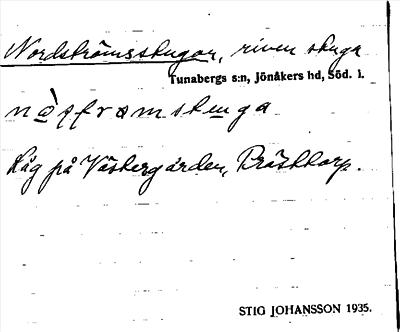 Nordströmsstugan, riven stuga
Tunabergs s:n, Jönåkers hd, Söd. l.
Låg på Västergården, Bråsttorp.
STIG JOHANSSON 1935.